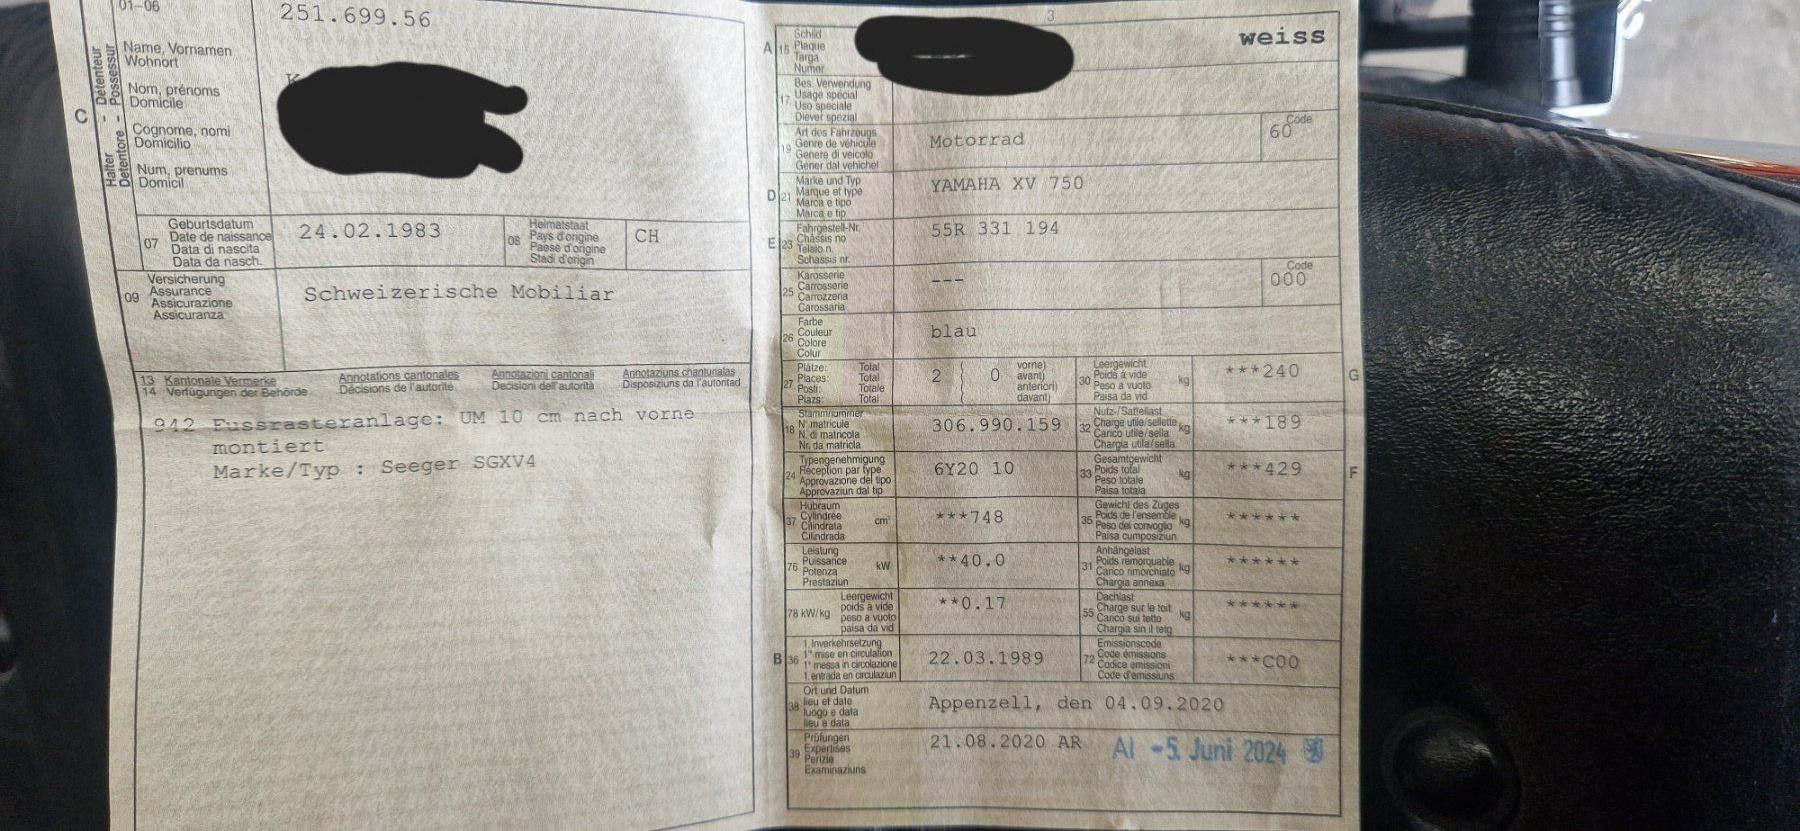 01-06
251.699.56
C
Halter - Détenteur
Detentore - Possessur
Name, Vornamen
Wohnort
Nom, prénoms
Domicile
Cognome, nomi
Domicilio
Num, prenums
Domicil
07
Geburtsdatum
Date de naissance
Data di nascita
Data da nasch.
24.02.1983
08
Heimatstaat
Pays d'origine
Paese d'origine
Stadi d'origin
CH
09
Versicherung
Assurance
Assicurazione
Assicuranza
Schweizerische Mobiliar
13 Kantonale Vermerke
14 Verfügungen der Behörde
Annotations cantonales
Décisions de l'autorité
Annotazioni cantonali
Decisioni dell'autorità
Annotaziuns chantunalas
Disposiziuns da l'autoritad
942 Fussrasteranlage: UM 10 cm nach vorne
montiert
Marke/Typ : Seeger SGXV4
3
A 15
Schild
Plaque
Targa
Numer
weiss
17
Bes. Verwendung
Usage spécial
Uso speciale
Diever spezial
19
Art des Fahrzeugs
Genre de véhicule
Genere di veicolo
Gener dal vehichel
Motorrad
Code
60
D 21
Marke und Typ
Marque et type
Marca e tipo
Marca e tip
YAMAHA XV 750
E 23
Fahrgestell-Nr.
Châssis no
Telaio n.
Schassis nr.
55R 331 194
25
Karosserie
Carrosserie
Carrozzeria
Carossaria
---
Code
000
26
Farbe
Couleur
Colore
Colur
blau
27
Plätze: Total
Places: Total
Posti: Totale
Plazs: Total
2 ( 0
vorne)
avant)
anteriori)
davant)
30
Leergewicht
Poids à vide
Peso a vuoto
Paisa da vid
kg
***240
G
18
Stammnummer
N° matricule
N. di matricola
Nr. da matricla
306.990.159
32
Nutz-/Sattellast
Charge utile/sellette
Carico utile/sella
Chargia utila/sella
kg
***189
24
Typengenehmigung
Réception par type
Approvazione del tipo
Approvaziun dal tip
6Y20 10
33
Gesamtgewicht
Poids total
Peso totale
Paisa totala
kg
***429
F
37
Hubraum
Cylindrée
Cilindrata
Cilindrada
cm³
***748
35
Gewicht des Zuges
Poids de l'ensemble
Peso del convoglio
Paisa cumposiziun
kg
******
76
Leistung
Puissance
Potenza
Prestaziun
kW
**40.0
31
Anhängelast
Poids remorquable
Carico rimorchiato
Chargia annexa
kg
******
78 kW/kg
Leergewicht
poids à vide
peso a vuoto
paisa da vid
**0.17
55
Dachlast
Charge sur le toit
Carico sul tetto
Chargia sin il tetg
kg
******
B 36
1. Inverkehrsetzung
1re mise en circulation
1a messa in circolazione
1. entrada en circulaziun
22.03.1989
72
Emissionscode
Code émissions
Codice emissioni
Code d'emissiuns
***C00
38
Ort und Datum
lieu et date
luogo e data
lieu e data
Appenzell, den 04.09.2020
39
Prüfungen
Expertises
Perizie
Examinaziuns
21.08.2020 AR
AI -5. Juni 2024